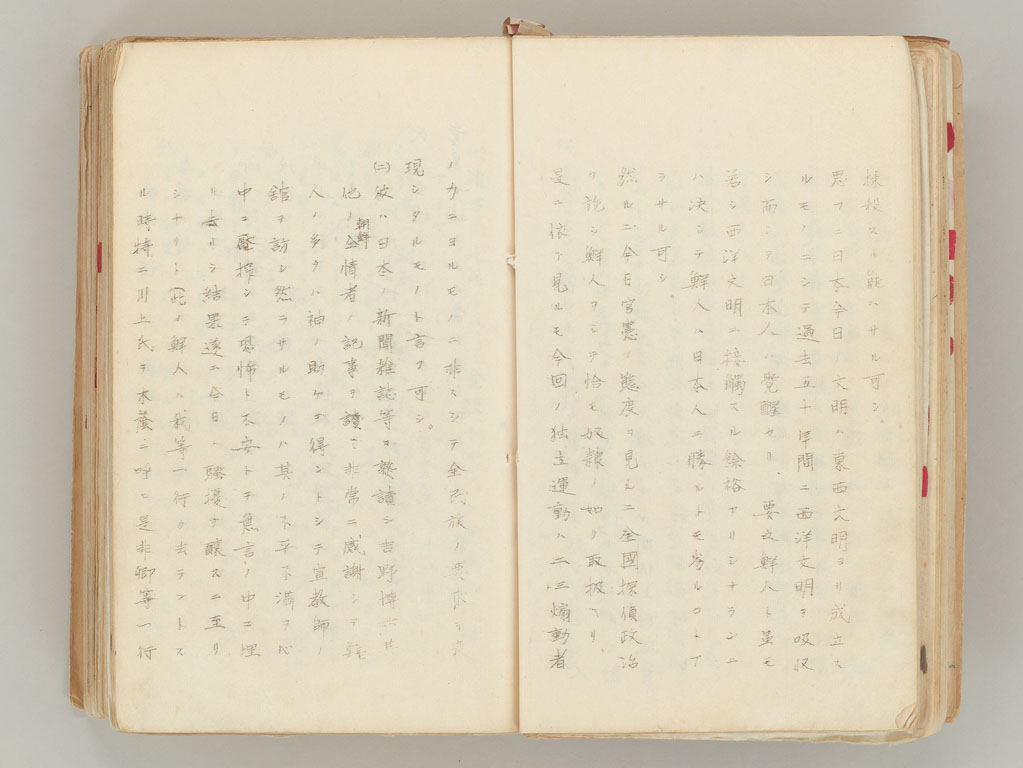 抜スル能ハサル可シ
思フニ日本今日ノ文明ハ東西文明ヨリ成立ス
ルモノニシテ過去五十年間ニ西洋文明ヲ吸収
シ而シテ日本人ハ覚醒セリ、要之鮮人ト虽モ
若シ西洋文明ニ接觸スル餘裕アリシナランニ
ハ決シテ鮮人ハ日本人ニ勝ルトモ劣ルコトア
ラサル可シ。
然ルニ今日官憲ノ態度ヲ見ルニ全國探偵政治
ヲ施シ鮮人ヲシテ恰モ奴隷ノ如ク取扱ヘリ、
是ニ依テ見ルモ今回ノ独立運動ハ二、三煽動者
ノ力ニヨルモノニ非スシテ全民族ノ要求ヲ表
現シタルモノト言フ可シ。
(二)彼ハ日本ノ新聞雑誌等ヲ熟讀シ吉野博士其
他ノ朝鮮同情者ノ記事ヲ讀ミ非常ニ感謝シテ
人ノ多クハ神ノ助ケヲ得ントシテ宣教師ノ
舘ヲ訪レ然ラサルモノハ其ノ不平不満ヲ心
中ニ壓搾シテ恐怖ト不安トヲ無言ノ中ニ埋
リ去リシ結果遂ニ今日ノ騒擾ヲ醸スニ至リ
シナリト(此ノ鮮人ハ我等一行ノ去ラントス
ル時特ニ川上氏ヲ木蔭ニ呼ヒ是非卿等一行